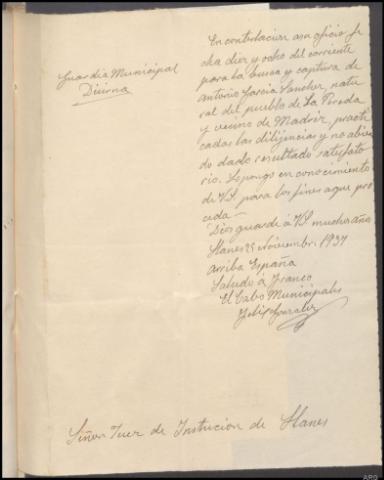 Guardia Municipal
Diurna
En contestacion a su oficio fe
cha diez y ocho del corriente
para la busca y captura de
Antonio Garcia Sanchez, natu
ral del pueblo de La Pereda
y vecino de Madriz, practi
cadas las diligencias y no abien
do dado resultado satisfato
rio. Lo pongo en conocimiento
de V.S. para los fines aque pro
ceda—
Dios guarde á V.S. muchos años
Llanes 25 Noviembre 1937
Arriba España
Saludo á Franco
El Cabo Municipal
Felix Gonzalez
Señor Juez de Instrucion de Llanes
ARG